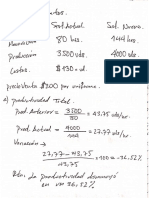 Sist. Actual Sist. Nuevo
80 hrs. 144 hrs.
Producción 3500 uds. 4000 uds.
Costos $130 ud.
precio venta $200 por uniforme.
a) Productividad Total
Prod. Anterior = 3500 / 80 = 43,75 uds/hr.
Prod. Actual = 4000 / 144 = 27,77 uds/hr.
Variación →
27,77 - 43,75 / 43,75 × 100 = -36,52%
Rta: La productividad disminuyó
en un 36,52%